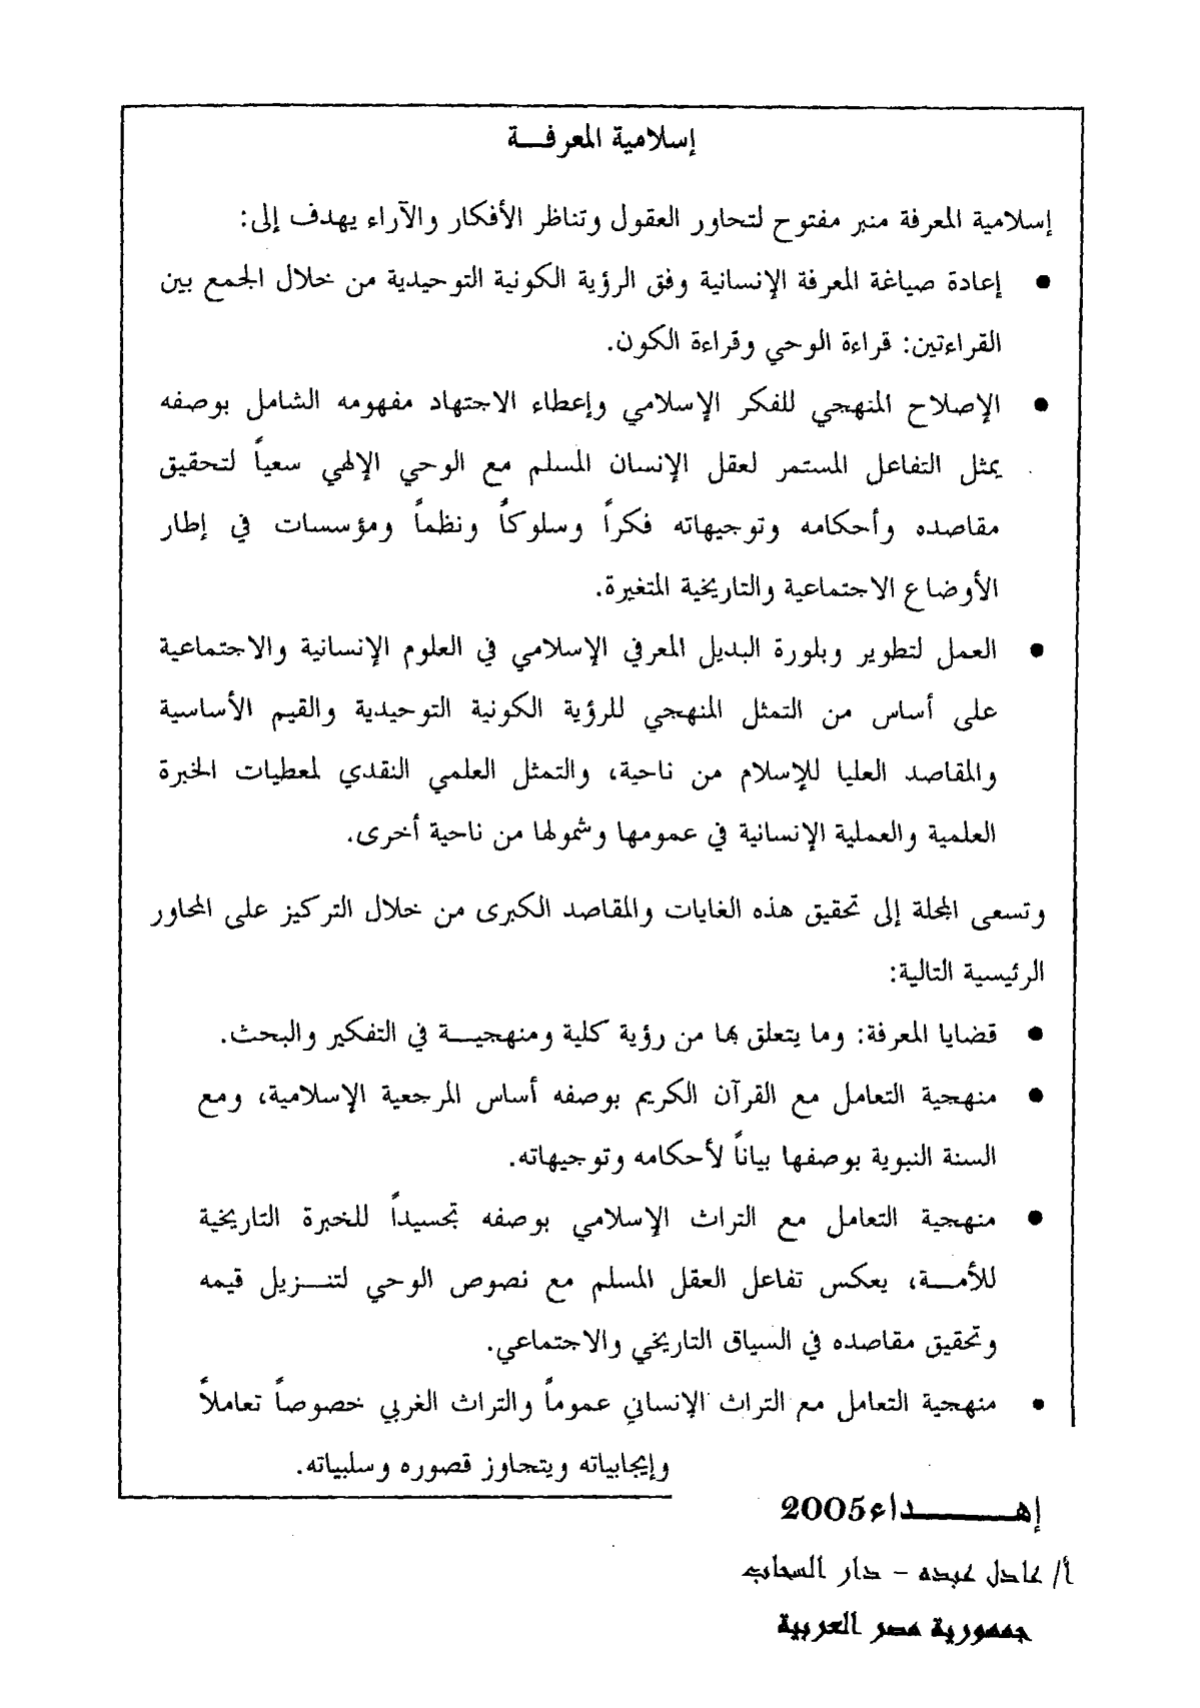 إسلامية المعرفـــة
إسلامية المعرفة منبر مفتوح لتحاور العقول وتناظر الأفكار والآراء يهدف إلى:
● إعادة صياغة المعرفة الإنسانية وفق الرؤية الكونية التوحيدية من خلال الجمع بين
القراءتين: قراءة الوحي وقراءة الكون.
● الإصلاح المنهجي للفكر الإسلامي وإعطاء الاجتهاد مفهومه الشامل بوصفه
يمثل التفاعل المستمر لعقل الإنسان المسلم مع الوحي الإلهي سعياً لتحقيق
مقاصده وأحكامه وتوجيهاته فكراً وسلوكاً ونظماً ومؤسسات في إطار
الأوضاع الاجتماعية والتاريخية المتغيرة.
● العمل لتطوير وبلورة البديل المعرفي الإسلامي في العلوم الإنسانية والاجتماعية
على أساس من التمثل المنهجي للرؤية الكونية التوحيدية والقيم الأساسية
والمقاصد العليا للإسلام من ناحية، والتمثل العلمي النقدي لمعطيات الخبرة
العلمية والعملية الإنسانية في عمومها وشمولها من ناحية أخرى.
وتسعى المجلة إلى تحقيق هذه الغايات والمقاصد الكبرى من خلال التركيز على المحاور
الرئيسية التالية:
● قضايا المعرفة: وما يتعلق بها من رؤية كلية ومنهجيـــة في التفكير والبحث.
● منهجية التعامل مع القرآن الكريم بوصفه أساس المرجعية الإسلامية، ومع
السنة النبوية بوصفها بياناً لأحكامه وتوجيهاته.
● منهجية التعامل مع التراث الإسلامي بوصفه تجسيداً للخبرة التاريخية
للأمـــة، يعكس تفاعل العقل المسلم مع نصوص الوحي لتنـــزيل قيمه
وتحقيق مقاصده في السياق التاريخي والاجتماعي.
● منهجية التعامل مع التراث الإنساني عموماً والتراث الغربي خصوصاً تعاملاً
وإيجابياته ويتجاوز قصوره وسلبياته.
إهـــــــداء2005
أ/ عادل عبده – دار السحاب
جمهورية مصر العربية